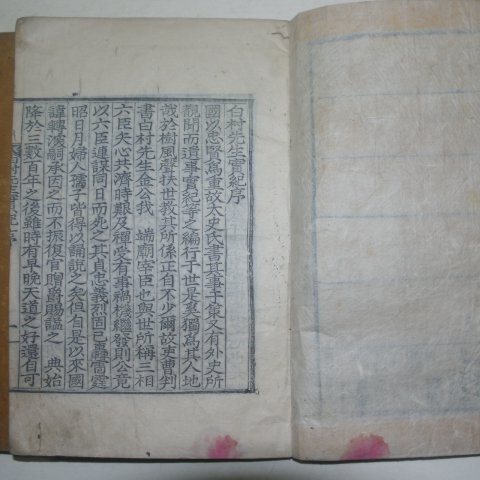 白村先生實紀序
國以忠賢爲重故太史氏書其事于策又有外史所
覩聞而遺事實紀等之編行于世是奚獨爲其人地
哉於樹風聲扶世敎其所係正自不少爾故吏曹判
書白村先生金公我 端廟宰臣也與世所稱三相
六臣矢心共濟時艱及禪受有事禍機繼發則公竟
以六臣連謀同日而死之其貞忠義烈固已轟雷霆
昭日月婦人孺子皆得以誦說之矣但自是以來國
諱轉深嗣承因之而不振復官贈爵賜謚之 典始
降於三數百年之後雖時有早晩天道之好還自可